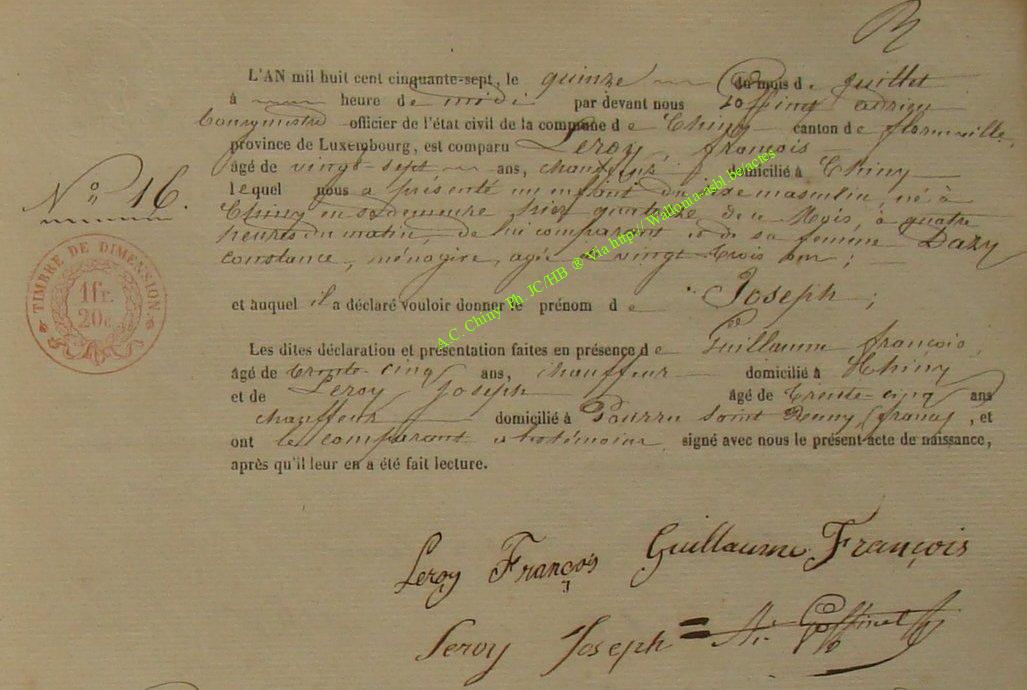 L'AN mil huit cent cinquante-sept, le quinze du mois de juillet
à heure de midi par devant nous Goffinet adrien
bourgmestre officier de l'état civil de la commune de Chiny canton de florenville,
province de Luxembourg, est comparu Leroy, françois
âgé de vingt-sept ans, chauffeur domicilié à Chiny
lequel nous a présenté un enfant du sexe masculin, né à
Chiny en sa demeure hier quatorze de ce Mois, à quatre
heures du matin, de lui comparant et de sa femme Dazy
constance, ménagère, agée de vingt-trois ans;
et auquel il a déclaré vouloir donner le prénom de Joseph;
Les dites déclaration et présentation faites en présence de Guillaume françois,
âgé de trente-cinq ans, chauffeur domicilié à Chiny
et de Leroy Joseph âgé de trente-cinq ans
chauffeur domicilié à Pourru Saint Remy (france), et
ont le comparant et les témoins signé avec nous le présent acte de naissance,
après qu'il leur en a été fait lecture.
N° 16.
TIMBRE DE DIMENSION
1 fr.
20 c.
A.C. Chiny Ph. JC/HB ® Via http// Wallonia-asbl be/actes
Leroy François Guillaume François
Leroy Joseph = Goffinet